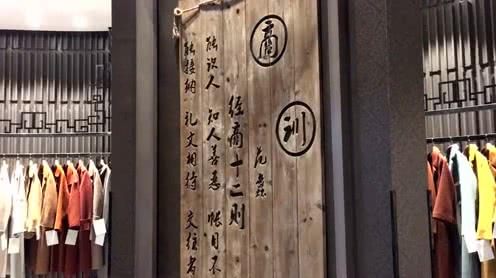 商訓
范蠡
经商十二则
能识人 知人善恶 帐目不
能接纳 礼文相待 交往者